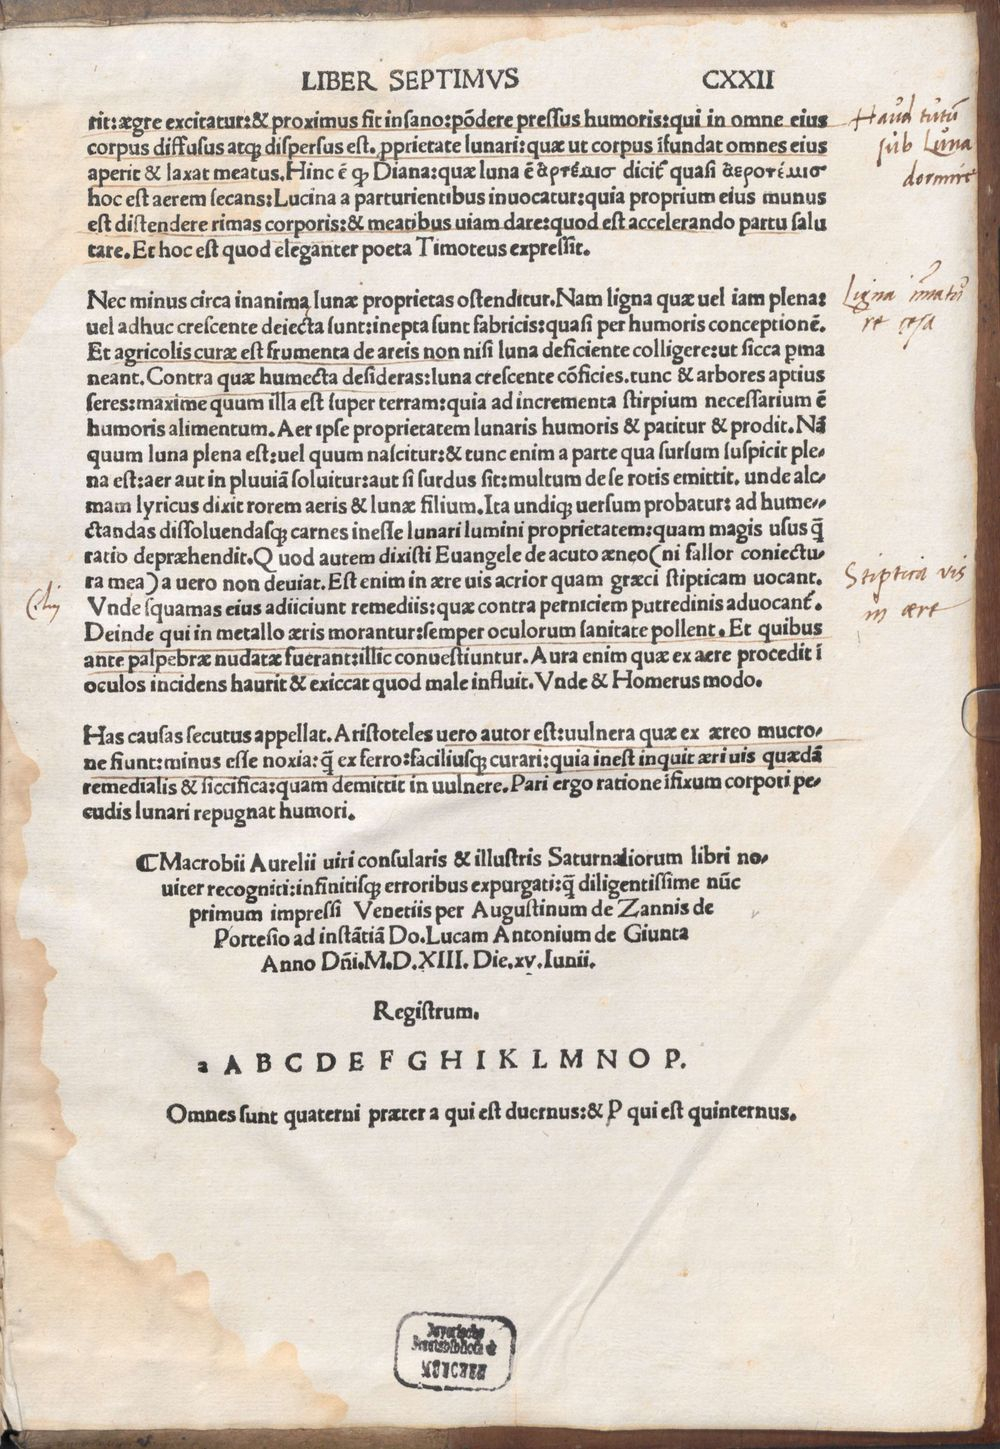 LIBER SEPTIMVS CXXII
rit:ægre excitatur:& proximus fit insano:põdere pressus humoris:qui in omne eius
corpus diffusus atq; dispersus est. ꝓprietate lunari:quæ ut corpus ĩfundat omnes eius
aperit & laxat meatus. Hinc ẽ ꝙ Diana:quæ luna ẽ ἄρτέμισ dicit᷑ quasi ἄεροτέμισ
hoc est aerem secans:Lucina a parturientibus inuocatur:quia proprium eius munus
est distendere rimas corporis:& meatibus uiam dare:quod est accelerando partu salu
tare. Et hoc est quod eleganter poeta Timoteus expressit.
Haud tutũ
sub Luna
dormire
Nec minus circa inanima lunæ proprietas ostenditur. Nam ligna quæ uel iam plena:
uel adhuc crescente deiecta sunt:inepta sunt fabricis:quasi per humoris conceptionẽ.
Et agricolis curæ est frumenta de areis non nisi luna deficiente colligere:ut sicca ꝑma
neant. Contra quæ humecta desideras:luna crescente cõficies. tunc & arbores aptius
seres:maxime quum illa est super terram:quia ad incrementa stirpium necessarium ẽ
humoris alimentum. Aer ipse proprietatem lunaris humoris & patitur & prodit. Nã
quum luna plena est:uel quum nascitur:& tunc enim a parte qua sursum suspicit ple-
na est:aer aut in pluuiã soluitur:aut si surdus sit:multum de se rotis emittit. unde alc-
mam lyricus dixit rorem aeris & lunæ filium. Ita undiq; uersum probatur: ad hume-
ctandas dissoluendasq; carnes inesse lunari lumini proprietatem:quam magis usus q̃
ratio depræhendit. Quod autem dixisti Euangele de acuto æneo (ni fallor coniectu-
ra mea) a uero non deuiat. Est enim in ære uis acrior quam græci stipticam uocant.
Vnde squamas eius adiiciunt remediis:quæ contra perniciem putredinis aduocant᷑.
Deinde qui in metallo æris morantur:semper oculorum sanitate pollent. Et quibus
ante palpebræ nudatæ fuerant:illic conuestiuntur. Aura enim quæ ex aere procedit ĩ
oculos incidens haurit & exiccat quod male influit. Vnde & Homerus modo.
Ligna ĩmatu
re cęsa
Stiptica vis
in ære
Has causas secutus appellat. Aristoteles uero autor est:uulnera quæ ex æreo mucro-
ne fiunt:minus esse noxia:q̃ ex ferro:faciliusq; curari:quia inest inquit æri uis quædã
remedialis & siccifica:quam demittit in uulnere. Pari ergo ratione ĩfixum corpori pe-
cudis lunari repugnat humori.
⁋Macrobii Aurelii uiri consularis & illustris Saturnaliorum libri no-
uiter recogniti:infinitisq; erroribus expurgati:q̃ diligentissime nũc
primum impressi Venetiis per Augustinum de Zannis de
Portesio ad instãtiã Do. Lucam Antonium de Giunta
Anno Dñi. M.D.XIII. Die. xv. Iunii.
Registrum.
a A B C D E F G H I K L M N O P.
Omnes sunt quaterni præter a qui est duernus:& P qui est quinternus.
Bayerische
Staatsbibliothek
MÜNCHEN